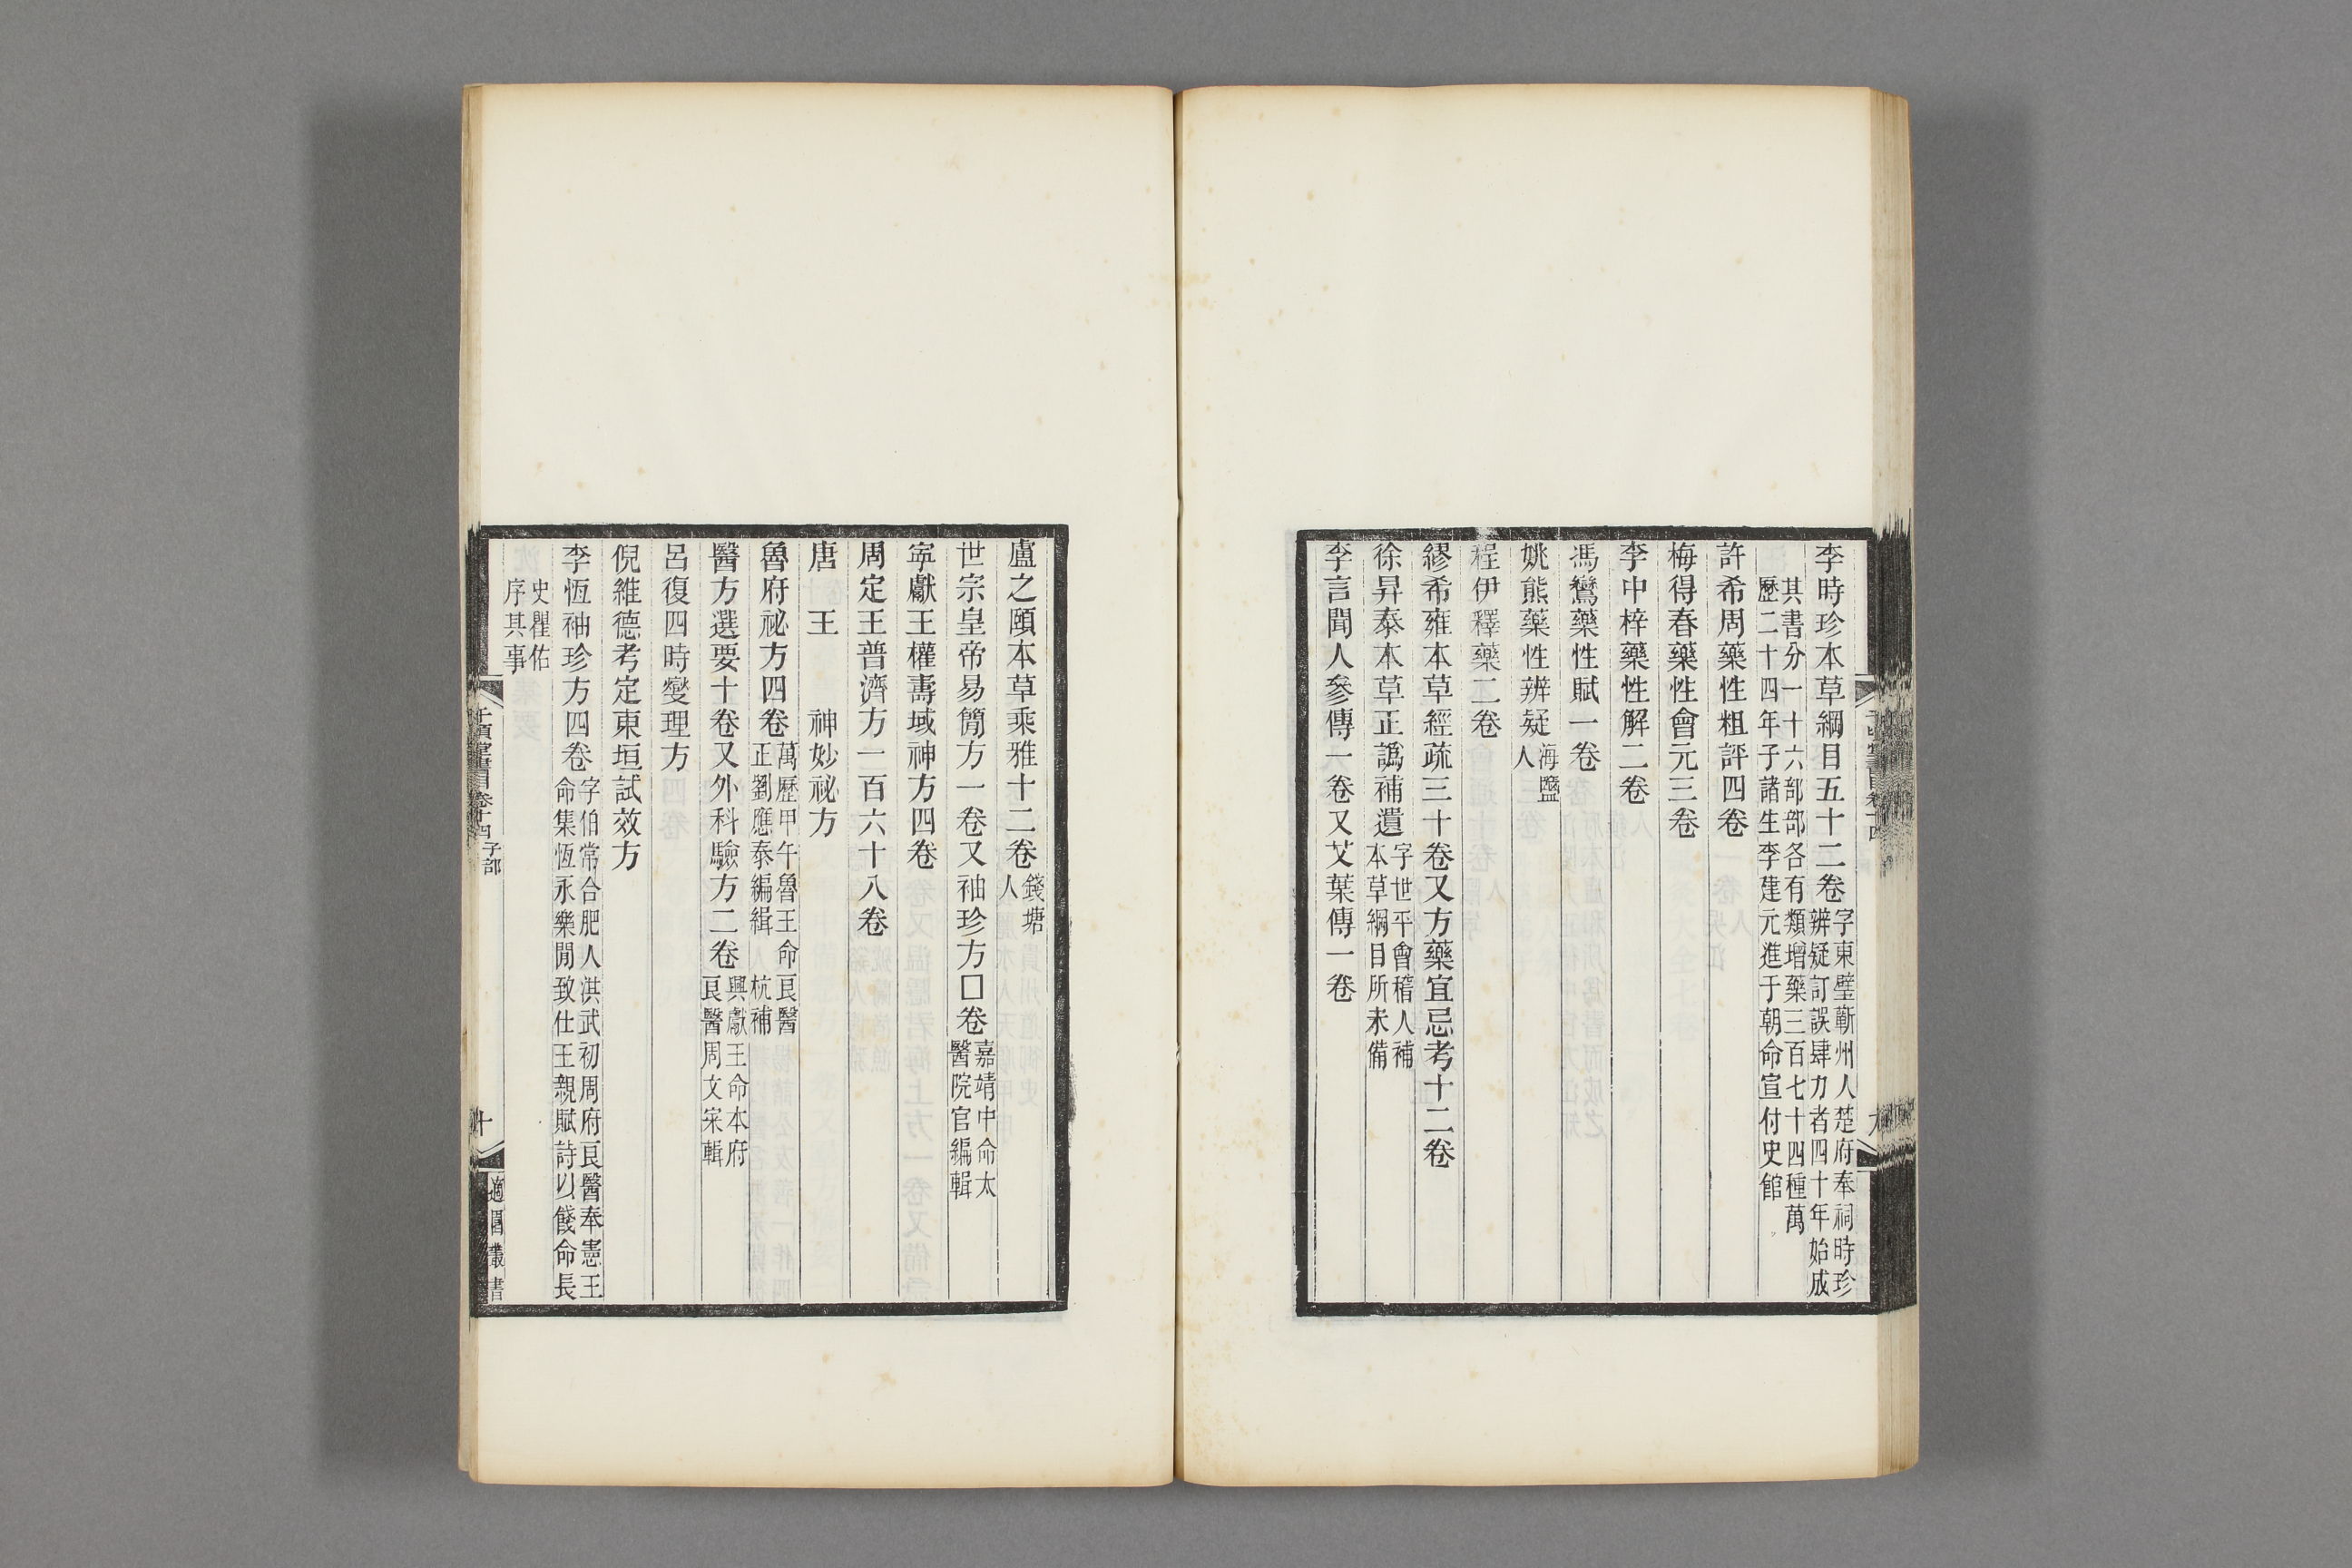 李時珍本草綱目五十二卷字東璧蘄州人楚府奉祠時珍辨疑訂誤肆力者四十年始成
其書分一十六部部各有類增藥三百七十四種萬歷二十四年子諸生李建元進于朝命宣付史館
許希周藥性粗評四卷
梅得春藥性會元三卷
李中梓藥性解二卷
馮鸞藥性賦一卷
姚熊藥性辨疑海鹽人
程伊釋藥二卷
繆希雍本草經疏三十卷又方藥宜忌考十二卷
徐昇泰本草正譌補遺字世平會稽人補本草綱目所未備
李言聞人參傳一卷又艾葉傳一卷
盧之頤本草乘雅十二卷錢塘人
世宗皇帝易簡方一卷又袖珍方□卷嘉靖中命太醫院官編輯
寧獻王權壽域神方四卷
周定王普濟方一百六十八卷
唐 王 神妙祕方
魯府祕方四卷萬歷甲午魯王命良醫正劉應泰編緝 杭補
醫方選要十卷又外科驗方二卷興獻王命本府良醫周文寀輯
呂復四時燮理方
倪維德考定東垣試效方
李恆袖珍方四卷字伯常合肥人洪武初周府良醫奉憲王命集恆永樂閒致仕王親賦詩以餞命長
史瞿佑序其事
千頃堂書目卷十四 子部
十
適園叢書